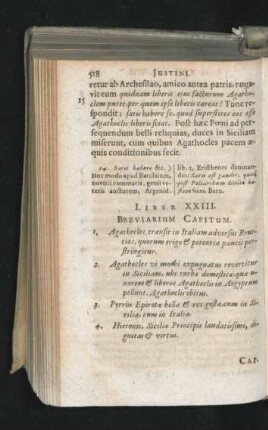 518 JUSTINI
retur ab Archesilao, amico antea patris, roga-
vit eum quidnam liberis ejus facturum Agatho-
15 clem putet, per quem ipse liberis careat? Tunc res-
pondit; satis habere se, quod superstites eos esse
Agathoclis liberis sciat. Post hæc Pœni ad per-
sequendum belli reliquias, duces in Siciliam
miserunt, cum quibus Agathocles pacem æ-
quis conditionibus fecit.
14. Satis habere &c.)
Hoc modo apud
novum commatis, genus ve-
teris auctorum,
lib. 1.
duc: Satis est
post
Bern.
LIBER XXIII.
BREVIARIUM CAPITUM.
1. Agathocles transit in Italiam adversus Brut-
tios, quorum origo & potentia paucis per-
stringitur.
2. Agathocles vi morbi expugnatus revertitur
in Siciliam, ubi turbæ domesticæ quæ u-
xorem & liberos Agathoclis in Ægyptum
pellunt. Agathoclis obitus.
3. Pyrrhi Epirotæ bella & res gestæ cum in Si-
cilia, tum in Italia.
4. Hieronis, Siciliæ Principis laudatissimi, di-
gnitas & virtus.
CAP.